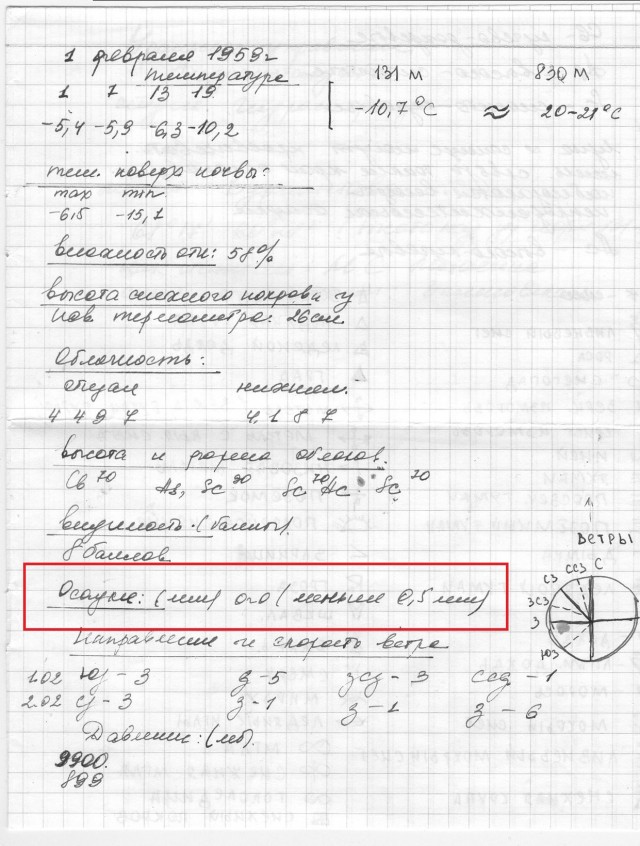 1 февраля 1959г
температура
131 м 830 м
1 7 13 19
-10,7°C ≈ 20-21°C
-5,4 -5,9 -6,3 -10,2
тем. поверх почвы:
max min
-6,5 -15,1
влажность отн: 58%
высота снежного покрова у
пов. термометра: 26см
Облачность:
общая нижняя
4 4 9 7 4 1 8 7
высота и форма облаков.
Cb 70 As, Sc 90 Sc 70 Ac Sc 70
видимость (баллы).
8 баллов
Осадки: (мм) 0.0 (меньше 0,5 мм)
Направление и скорость ветра
1.02 ЮЗ - 3 З - 5 ЗСЗ - 3 ССЗ - 1
2.02 СЗ - 3 З - 1 З - 1 З - 6
Давлен: (мб).
9900.
899
Ветры
С
ССЗ
СЗ
ЗСЗ
З
ЮЗ